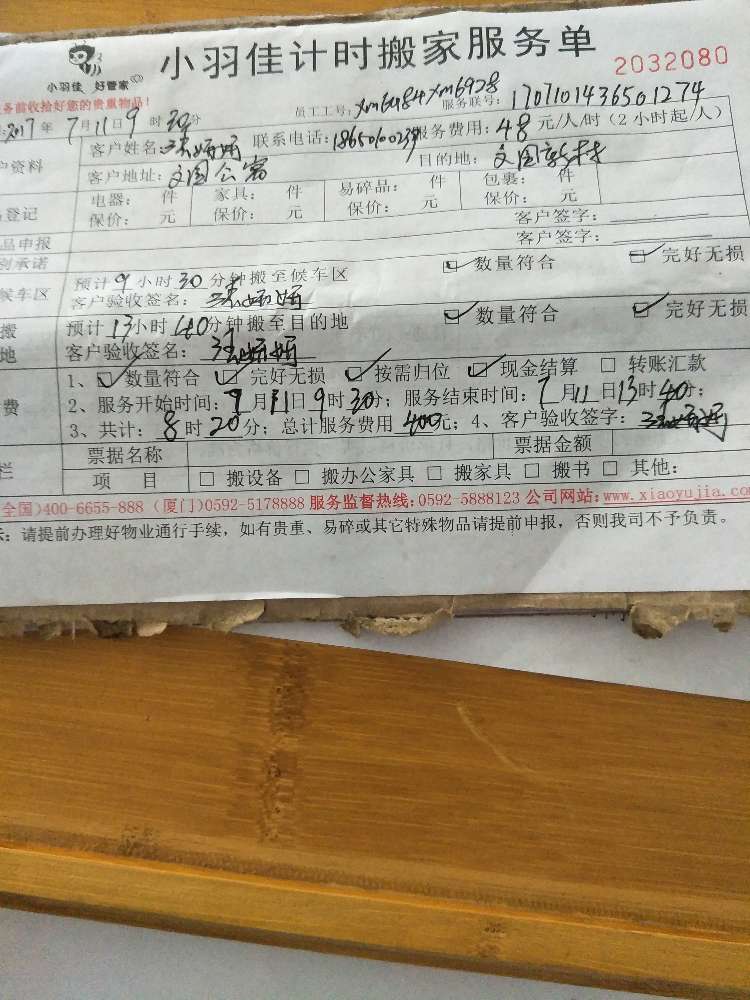 小羽佳 好管家
小羽佳计时搬家服务单
2032080
务前收拾好您的贵重物品!
员工工号: xm6484 xm6928 服务联号: 1707101436501274
2017年7月11日9时30分
户资料 客户姓名: 联系电话: 服务费用: 48元/人/时(2小时起/人)
客户地址: 文园公寓 目的地: 文园新村
登记 电器: 件 家具: 件 易碎品: 件 包裹: 件
保价: 元 保价: 元 保价: 元 保价: 元
品申报 客户签字:
别承诺 客户签字:
候车区 预计9小时30分钟搬至候车区 ☑数量符合 ☑完好无损
客户验收签名:
搬 预计13小时40分钟搬至目的地 ☑数量符合 ☑完好无损
地 客户验收签名:
1、☑数量符合 ☑完好无损 ☑按需归位 ☑现金结算 □转账汇款
费 2、服务开始时间: 7月11日9时30分; 服务结束时间: 7月11日13时40分;
3、共计: 8时20分; 总计服务费用 400元; 4、客户验收签字:
栏 票据名称 票据金额
项 目 □搬设备 □搬办公家具 □搬家具 □搬书 □其他:
全国)400-6655-888 (厦门)0592-5178888 服务监督热线:0592-5888123 公司网站:www.xiaoyujia.com
示: 请提前办理好物业通行手续,如有贵重、易碎或其它特殊物品请提前申报,否则我司不予负责。